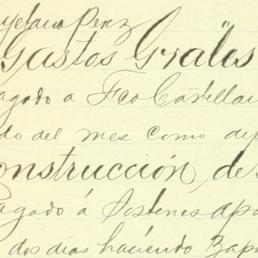 Cayetano Perez
Gastos Grales
Pagado a Fco Castellan
do del mes como dep
Construcción de
Pagado á Sostenes Apo
dos dias haciendo Zap